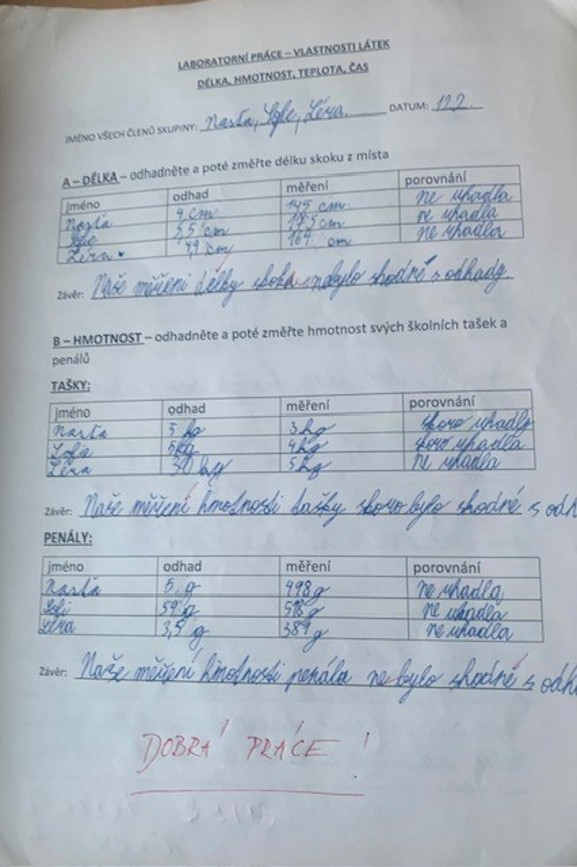 LABORATORNÍ PRÁCE – VLASTNOSTI LÁTEK
DÉLKA, HMOTNOST, TEPLOTA, ČAS
JMÉNO VŠECH ČLENŮ SKUPINY: Nasťa, Sofi, Léra DATUM: 12.2.
A – DÉLKA – odhadněte a poté změřte délku skoku z místa
jméno odhad měření porovnání
Nasťa cm 145 cm ne uhadla
Sofi 5,5 cm cm ne uhadla
Léra cm cm ne uhadla
Závěr: Naše měření délky skoku nebylo shodné s odhady.
B – HMOTNOST – odhadněte a poté změřte hmotnost svých školních tašek a
penálů
TAŠKY:
jméno odhad měření porovnání
Nasťa 5 kg 3 kg skoro uhadla
Sofi 5kg 4kg skoro uhadla
Léra kg 5 kg ne uhadla
Závěr: Naše měření hmotnosti tašky skoro bylo shodné s odh
PENÁLY:
jméno odhad měření porovnání
Nasťa 5 g 498g ne uhadla
Sofi g g ne uhadla
Léra 3,5 g 389 g ne uhadla
Závěr: Naše měření hmotnosti penálu ne bylo shodné s odh
DOBRÁ PRÁCE!